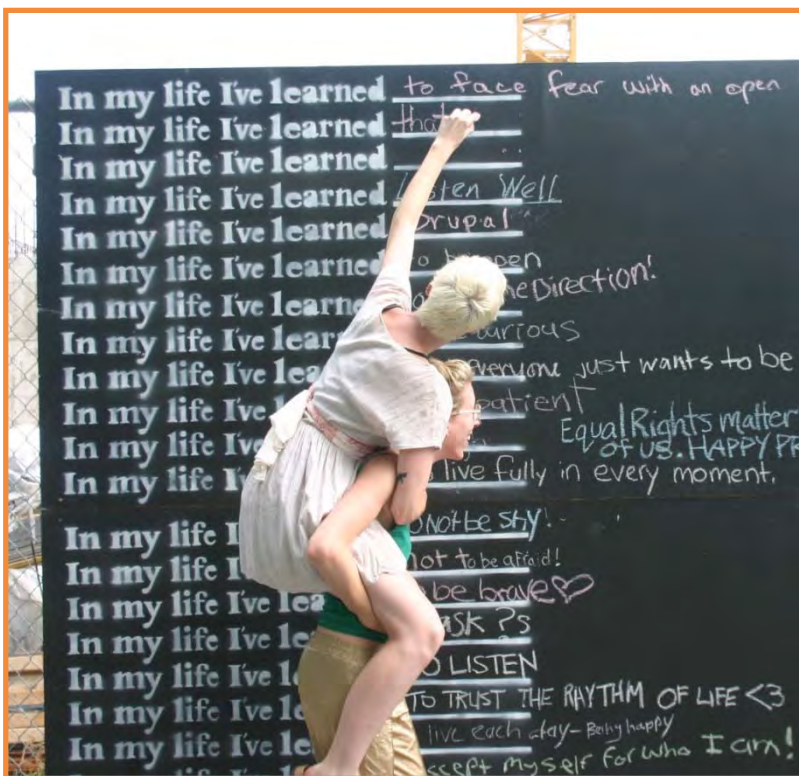 In my life I've learned to face fear with an open
In my life I've learned that
In my life I've learned
In my life I've learned Listen Well
In my life I've learned Drupal
In my life I've learned open
In my life I've learned Direction!
In my life I've
In my life I've everyone just wants to be
In my life I've patient
Equal Rights matter
of us. HAPPY PR
In my life I've
In my life I've live fully in every moment.
In my life Not be shy!
In my life not to be afraid!
In my life I've be brave♡
In my life I've ask ?s
In my life I've LISTEN
In my life I've TO TRUST THE RHYTHM OF LIFE <3
In my life I've live each day - Being happy
In my life I've accept myself for who I am!